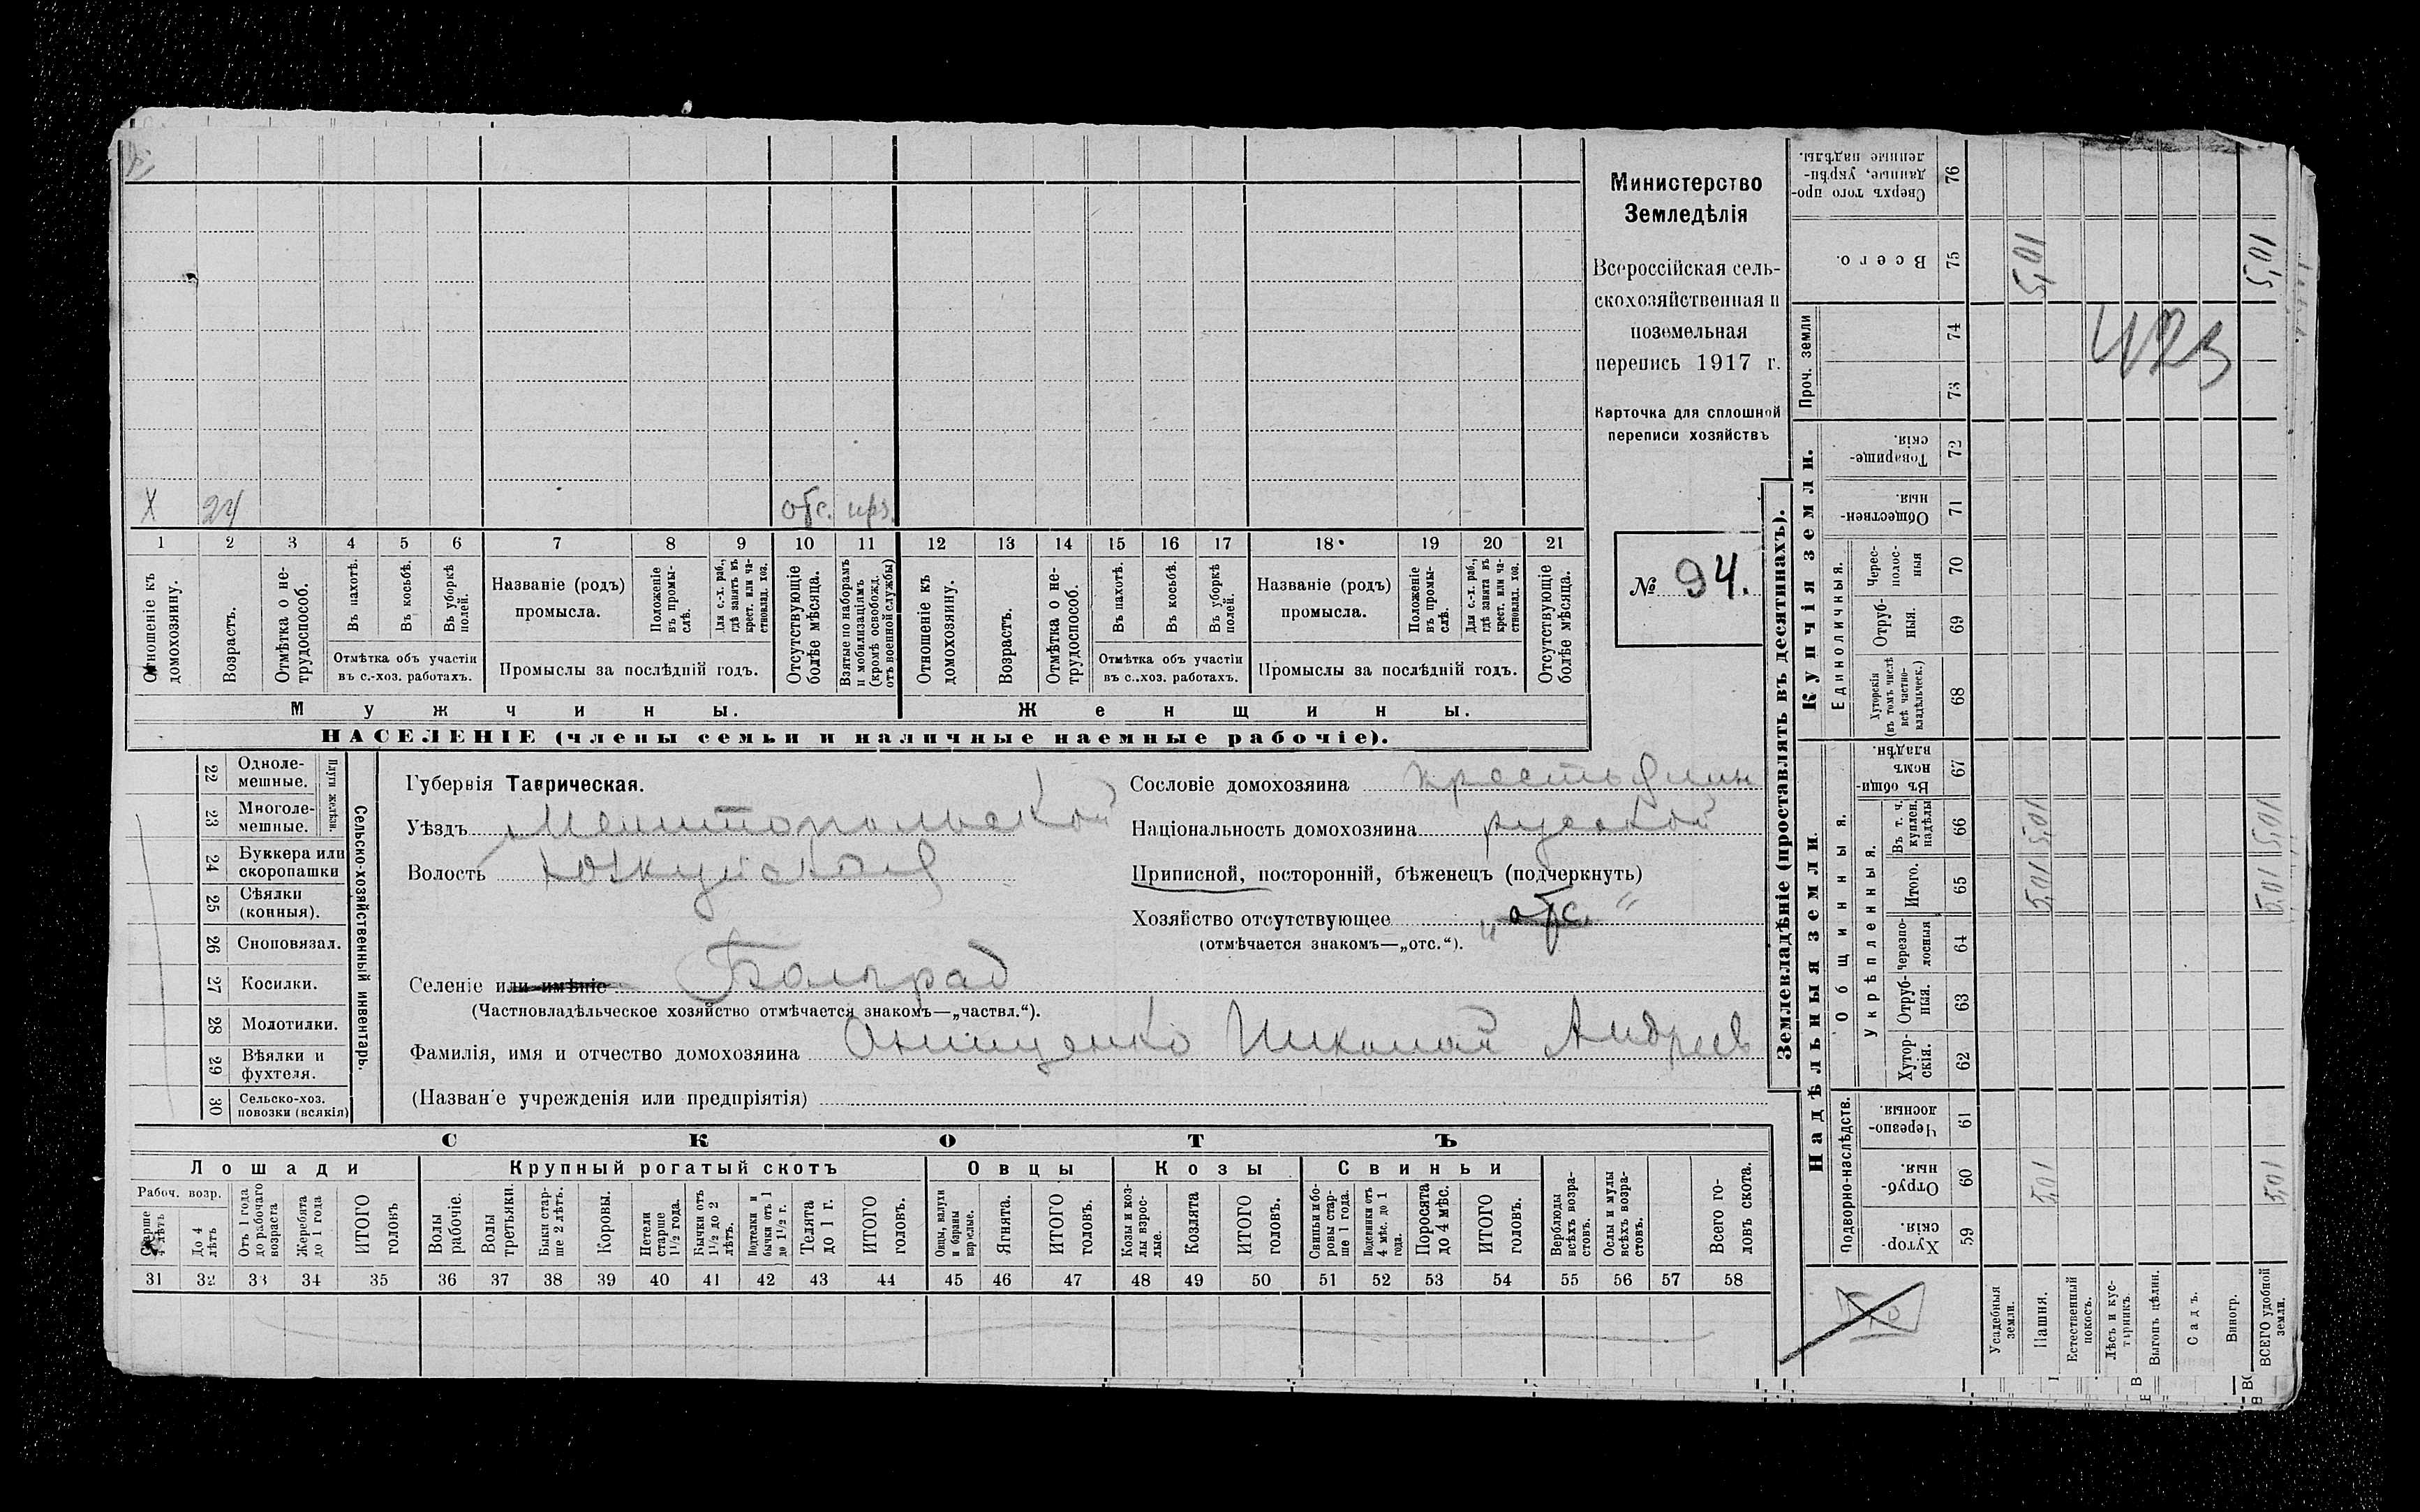 Х 24 отс. прз.
1 2 3 4 5 6 7 8 9 10 11 12 13 14 15 16 17 18 19 20 21
Отношеніе къ домохозяину.
Возрастъ.
Отмѣтка о нетрудоспособ.
Въ пахотѣ.
Въ косьбѣ.
Въ уборкѣ полей.
Отмѣтка объ участіи
въ с.-хоз. работахъ.
Названіе (родъ)
промысла.
Положеніе въ промыслѣ.
Для с.-х. раб., гдѣ занятъ въ крест. или частновлад. хоз.
Промыслы за послѣдній годъ.
Отсутствующіе болѣе мѣсяца.
Взятые по наборамъ и мобилизаціямъ (кромѣ освобожд. отъ военной службы)
Отношеніе къ домохозяину.
Возрастъ.
Отмѣтка о нетрудоспособ.
Въ пахотѣ.
Въ косьбѣ.
Въ уборкѣ полей.
Отмѣтка объ участіи
въ с.-хоз. работахъ.
Названіе (родъ)
промысла.
Положеніе въ промыслѣ.
Для с.-х. раб., гдѣ занята въ крест. или частновлад. хоз.
Промыслы за послѣдній годъ.
Отсутствующіе болѣе мѣсяца.
Мужчины. Женщины.
НАСЕЛЕНІЕ (члены семьи и наличные наемные рабочіе).
Министерство
Земледѣлія
Всероссійская сель-
скохозяйственная и
поземельная
перепись 1917 г.
Карточка для сплошной
переписи хозяйствъ
№ 94.
22 Однолемешные.
23 Многолемешные.
Плуги желѣзн.
24 Буккера или скоропашки
25 Сѣялки (конныя).
26 Сноповязал.
27 Косилки.
28 Молотилки.
29 Вѣялки и фухтеля.
30 Сельско-хоз. повозки (всякія)
Сельско-хозяйственный инвентарь.
Губернія Таврическая.
Уѣздъ Мелитопольской
Волость Юзкуйская
Селеніе или имѣніе Болград
(Частновладѣльческое хозяйство отмѣчается знакомъ—„частвл.“).
Фамилія, имя и отчество домохозяина Онищенко Николай Андреев
(Назван'е учрежденія или предпріятія)
Сословіе домохозяина крестьянин
Національность домохозяина русской
Приписной, посторонній, бѣженецъ (подчеркнуть)
Хозяйство отсутствующее „отс.“
(отмѣчается знакомъ—„отс.“).
СКОТЪ
Лошади Крупный рогатый скотъ Овцы Козы Свиньи
Рабоч. возр.
Старше 4 лѣтъ
До 4 лѣтъ
Отъ 1 года до рабочаго возраста
Жеребята до 1 года
ИТОГО головъ
Волы рабочіе.
Волы третьяки.
Быки старше 2 лѣтъ.
Коровы.
Нетели старше 1½ года.
Бычки отъ 1½ до 2 лѣтъ.
Подтелки и бычки отъ 1 до 1½ г.
Телята до 1 г.
ИТОГО головъ.
Овцы, валухи и бараны взрослые.
Ягнята.
ИТОГО головъ.
Козы и козлы взрослые.
Козлята
ИТОГО головъ.
Свиньи и боровы старше 1 года.
Подсвинки отъ 4 мѣс. до 1 года.
Поросята до 4 мѣс.
ИТОГО головъ.
Верблюды всѣхъ возрастовъ.
Ослы и мулы всѣхъ возрастовъ.
Всего головъ скота.
31 32 33 34 35 36 37 38 39 40 41 42 43 44 45 46 47 48 49 50 51 52 53 54 55 56 57 58
Землевладѣніе (проставлять въ десятинахъ).
Надѣльныя земли.
Купчія земли.
Проч. земли
Подворно-наслѣдств.
Общинныя.
Укрѣпленныя.
Единоличныя.
Хуторскія. 59
Отрубныя. 60
Черезполосныя. 61
Хуторскія. 62
Отрубныя. 63
Черезполосныя 64
Итого. 65
Въ т. ч. куплен. надѣлы 66
Въ общинномъ владѣн. 67
Хуторскія (въ томъ числѣ всѣ частновладѣльческ.) 68
Отрубныя. 69
Чересполосныя 70
Общественныя. 71
Товарищескія. 72
73
74
Всего. 75
Сверхъ того проданные, укрѣпленные надѣлы. 76
Усадебныя земли.
Пашня. 5,01 5,01 5,01 5,01
Естественный покосъ.
Лѣсъ и кустарникъ.
Выгонъ цѣлин.
Садъ.
Виногр.
ВСЕГО удобной земли. 5,01 5,01 5,01 5,01